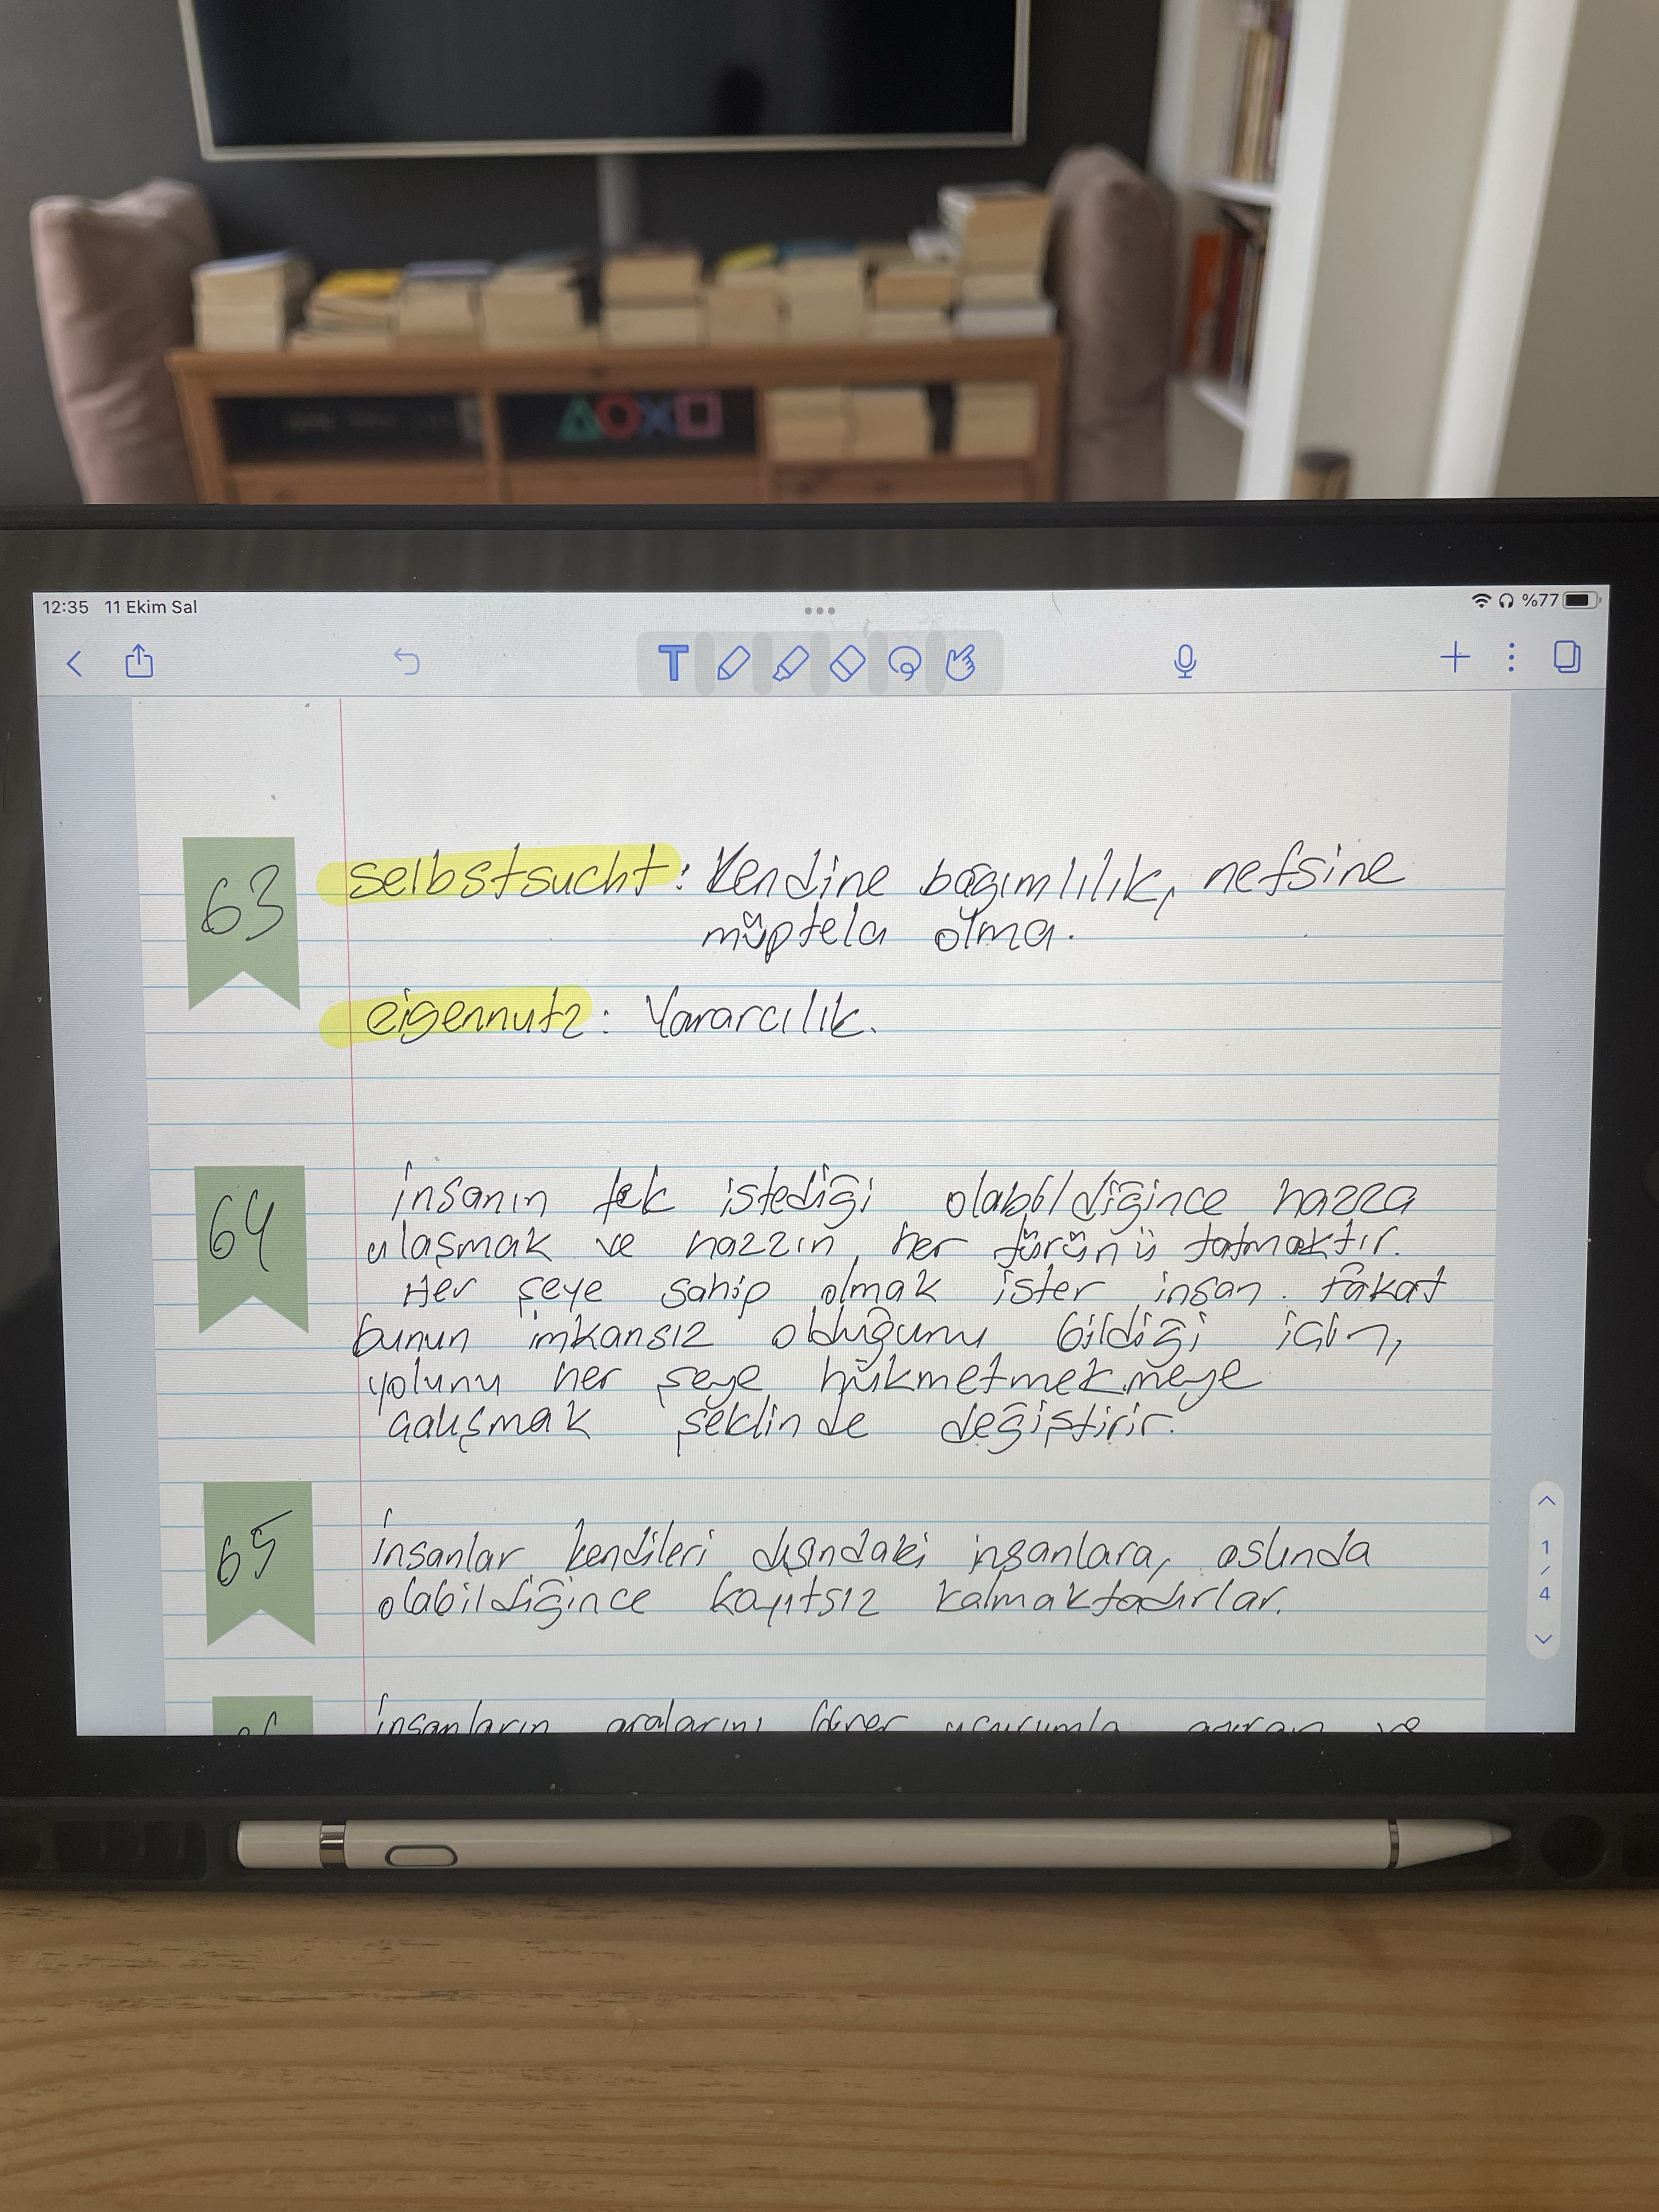 12:35 11 Ekim Sal
%77
T
63
selbstsucht: Kendine bağımlılık, nefsine
müptela olma.
eigennutz: Yararcılık.
64
insanın tek istediği olabildiğince hazza
ulaşmak ve hazzın her türünü tatmaktır.
Her şeye sahip olmak ister insan. Fakat
bunun imkansız olduğunu bildiği için,
yolunu her şeye hükmetmekmeye
çalışmak şeklinde değiştirir.
65
insanlar kendileri dışındaki insanlara, aslında
olabildiğince kayıtsız kalmaktadırlar.
1
/
4
insanların aralarını ve